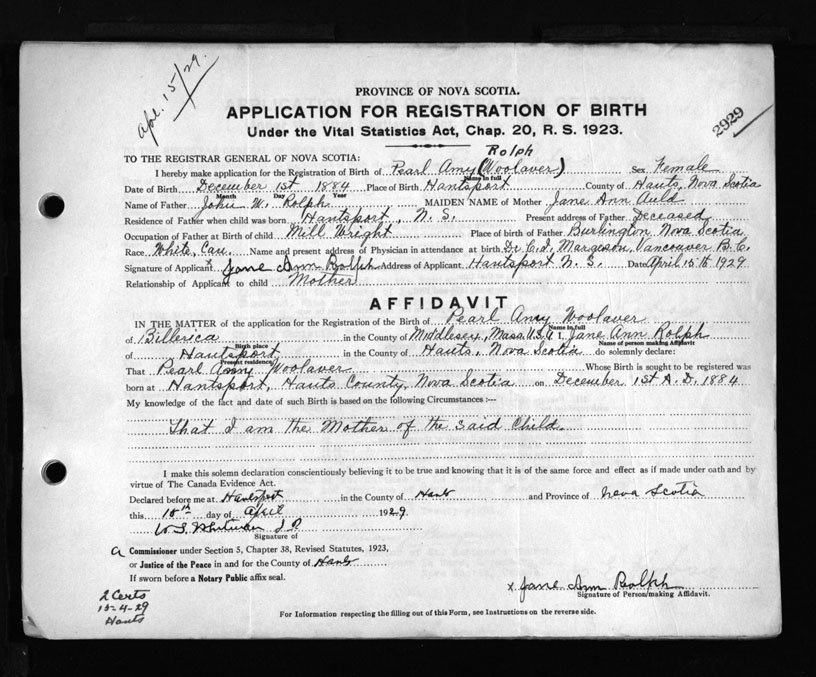 Apl. 15/29.
PROVINCE OF NOVA SCOTIA.
APPLICATION FOR REGISTRATION OF BIRTH
2929
Under the Vital Statistics Act, Chap. 20, R. S. 1923.
Rolph
TO THE REGISTRAR GENERAL OF NOVA SCOTIA:
I hereby make application for the Registration of Birth of Pearl Amy (Woolaver) Sex Female
Name in full
Date of Birth December 1st 1884 Place of Birth Hantsport County of Hants, Nova Scotia
Month Day Year
Name of Father John W. Rolph MAIDEN NAME of Mother Jane Ann Auld
Residence of Father when child was born Hantsport, N. S. Present address of Father Deceased
Occupation of Father at Birth of child Mill Wright Place of birth of Father Burlington Nova Scotia
Race White, Cau. Name and present address of Physician in attendance at birth Dr. C. I. Margeson, Vancouver B. C.
Signature of Applicant x Jane Ann Rolph Address of Applicant Hantsport N. S. Date April 15th 1929
Relationship of Applicant to child Mother
AFFIDAVIT
IN THE MATTER of the application for the Registration of the Birth of Pearl Amy Woolaver
Name in full
of Billerica in the County of Middlesex, Mass. U.S.A. I, Jane Ann Rolph
Birth place Name of person making Affidavit
of Hantsport in the County of Hants, Nova Scotia do solemnly declare:
Present residence
That Pearl Amy Woolaver Whose Birth is sought to be registered was
born at Hantsport, Hants County, Nova Scotia on December 1st A. D. 1884
My knowledge of the fact and date of such Birth is based on the following Circumstances :—
That I am the Mother of the said Child.
I make this solemn declaration conscientiously believing it to be true and knowing that it is of the same force and effect as if made under oath and by
virtue of The Canada Evidence Act.
Declared before me at Hantsport in the County of Hants and Province of Nova Scotia
this 15th day of April 1929
W S Whitman J. P.
Signature of
a Commissioner under Section 5, Chapter 38, Revised Statutes, 1923,
or Justice of the Peace in and for the County of Hants
If sworn before a Notary Public affix seal.
x Jane Ann Rolph
Signature of Person making Affidavit.
2 Certs
15-4-29
Hants
For Information respecting the filling out of this Form, see Instructions on the reverse side.